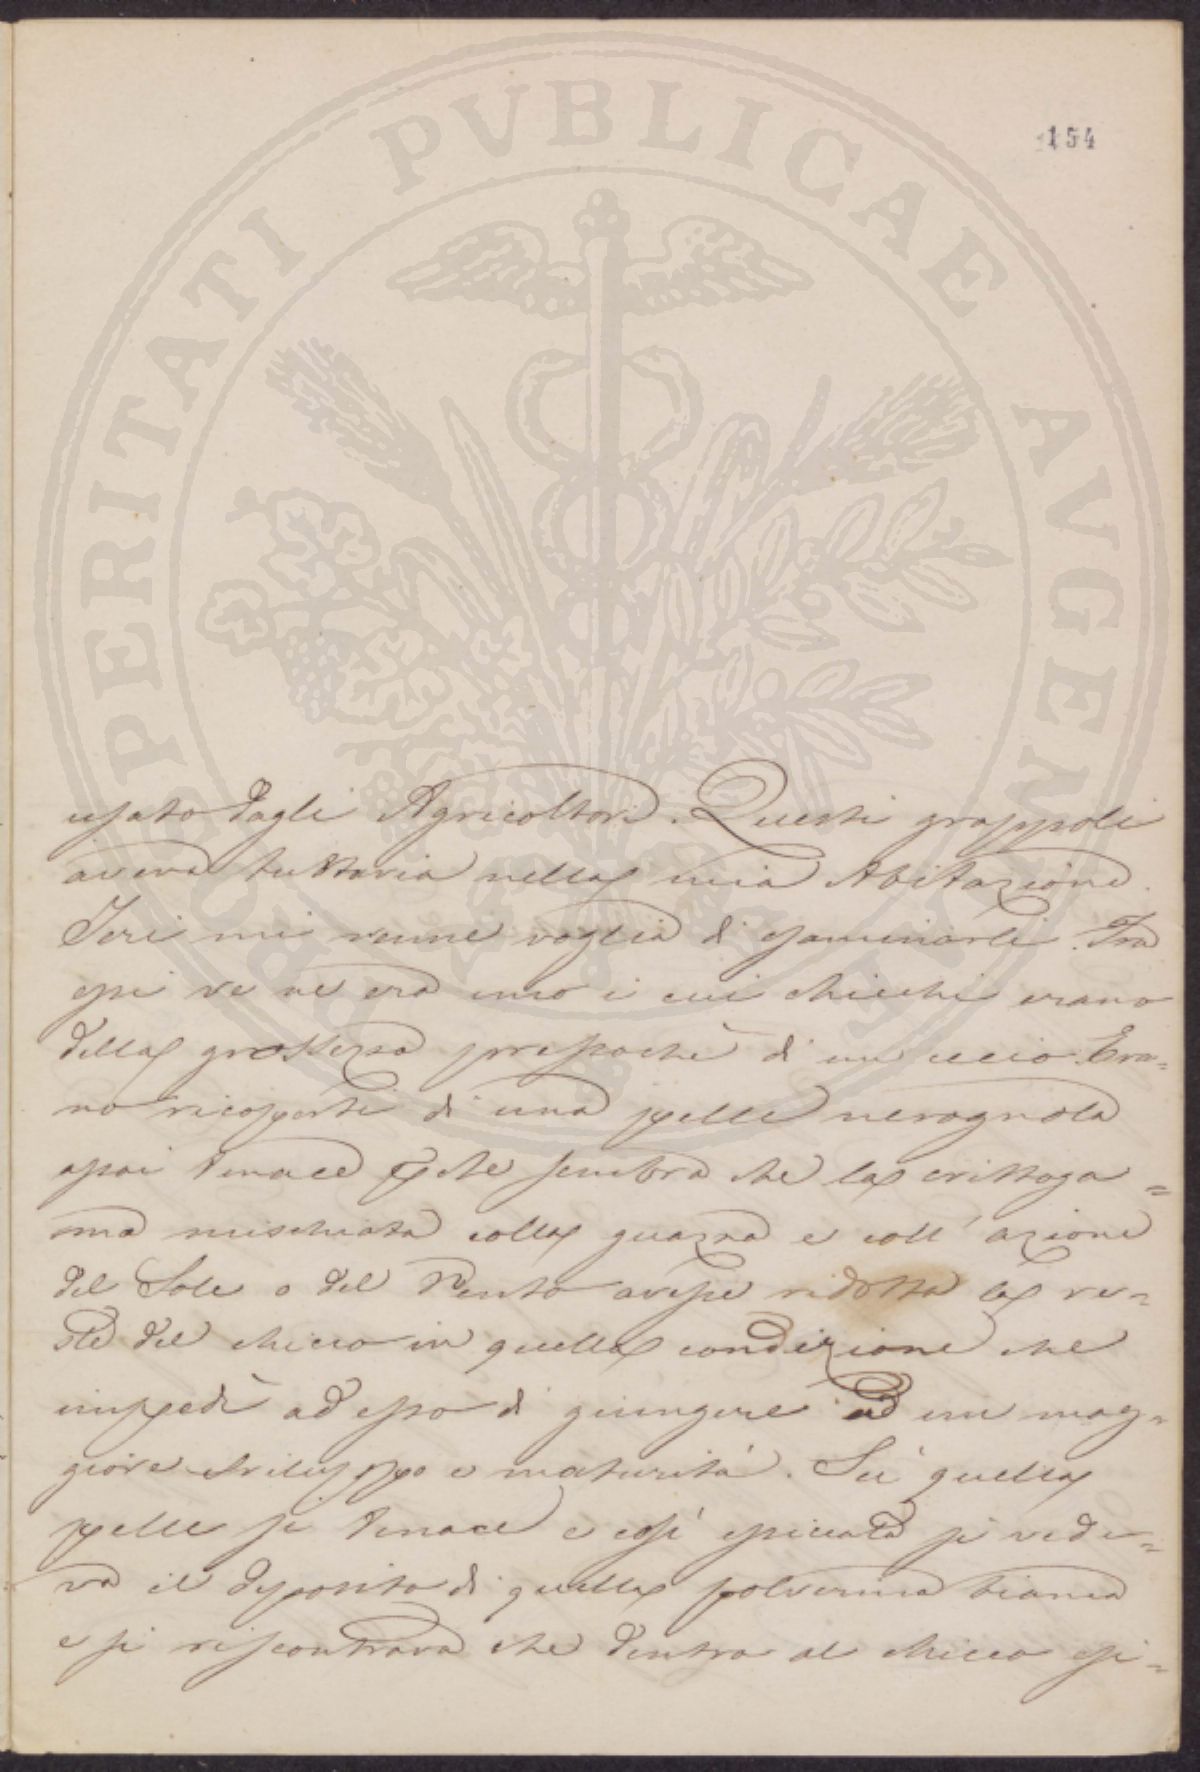 154
PROSPERITATI PUBLICAE AUGENDAE
usato dagli Agricoltori. Questi grappoli
aveva tuttavia nella mia Abitazione.
Jeri mi venne voglia di esaminarli. Tra
essi ve ne era uno i cui chicchi erano
della grossezza pressoché di un ceccio. Era=
no ricoperti di una pelle nerognola
assai tenace che sembra che la crittoga=
ma mischiata colla guazza e coll' azione
del Sole o del Vento avesse ridotta la ve=
ste del chicco in quella condizione che
impedì ad esso di giungere ad un mag=
giore sviluppo e maturità. Sù quella
pelle sì tenace e così essiccata si vede=
va il deposito di quella polverina bianca
e si riscontrava che dentro al chicco esi=